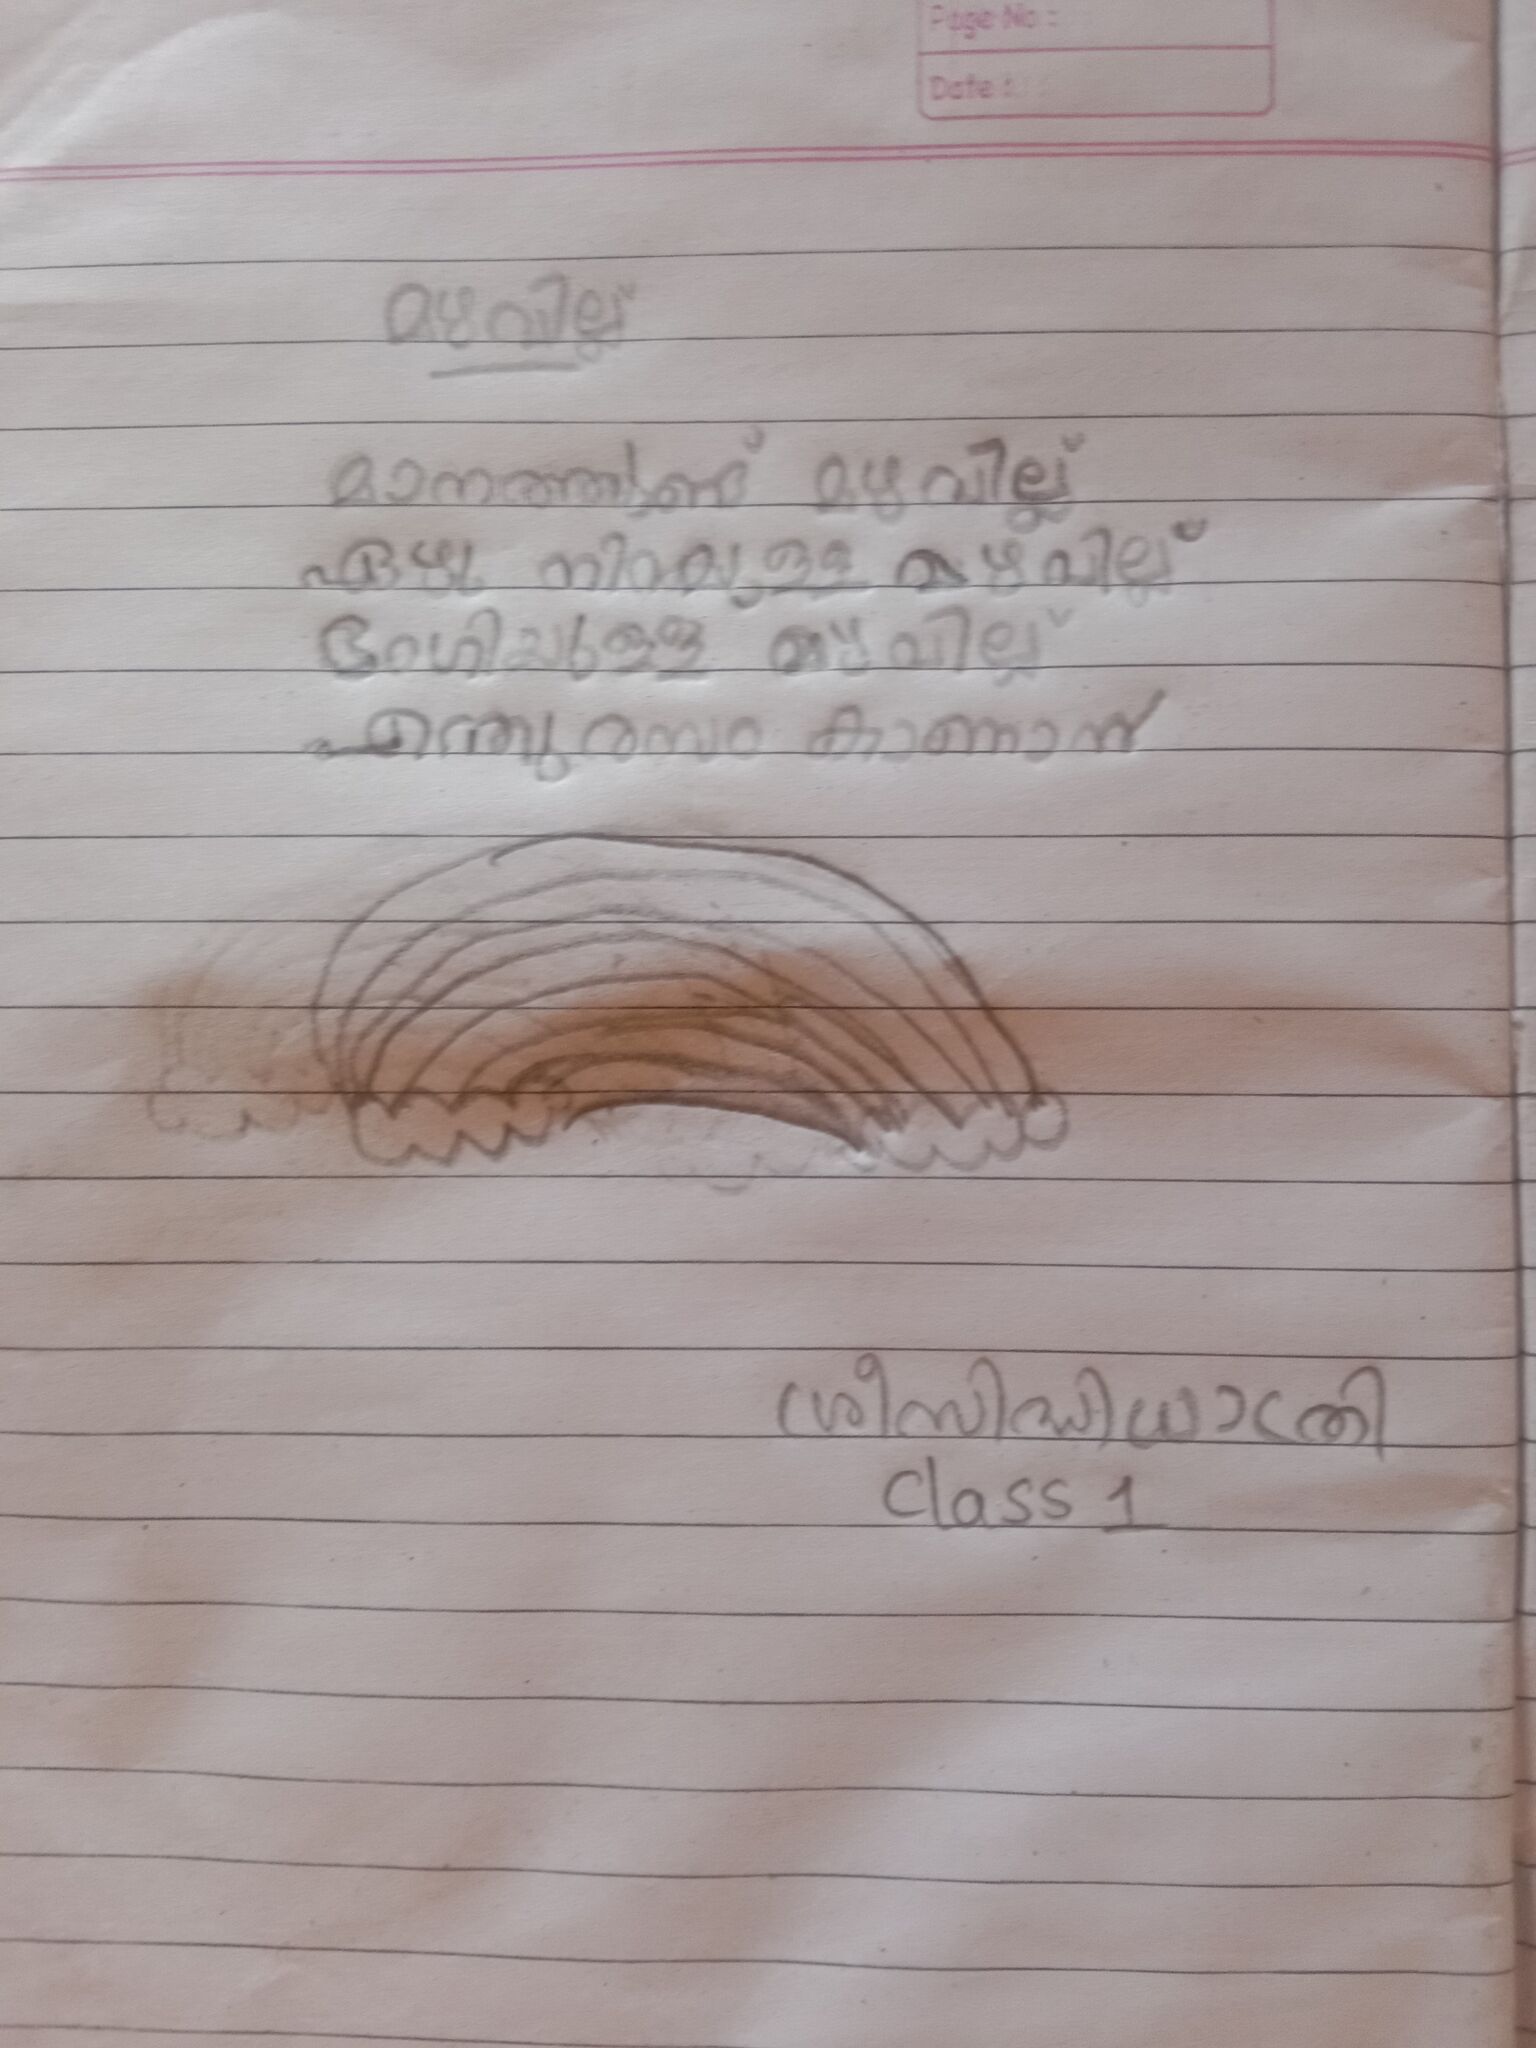 Page No.:
Date :
മഴവില്ല്
മാനത്തുണ്ട് മഴവില്ല്
ഏഴു നിറമുള്ള മഴവില്ല്
ഭംഗിയുള്ള മഴവില്ല്
എന്തു രസം കാണാൻ
ശ്രീസിദ്ധിധാത്രി
Class 1